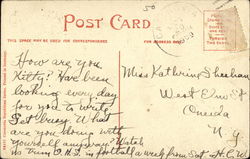 50
POST CARD
THIS SPACE MAY BE USED FOR CORRESPONDENCE
FOR ADDRESS ONLY
How are you
Kitty? Have been
looking every day
for you to write.
Got Busy. What
are you doing with
yourself anyway? Watch
us trim O.H.S. in football a week from Sat. H.C.
Miss Kathrine Sheehan
West Elm St
Oneida
N.Y.